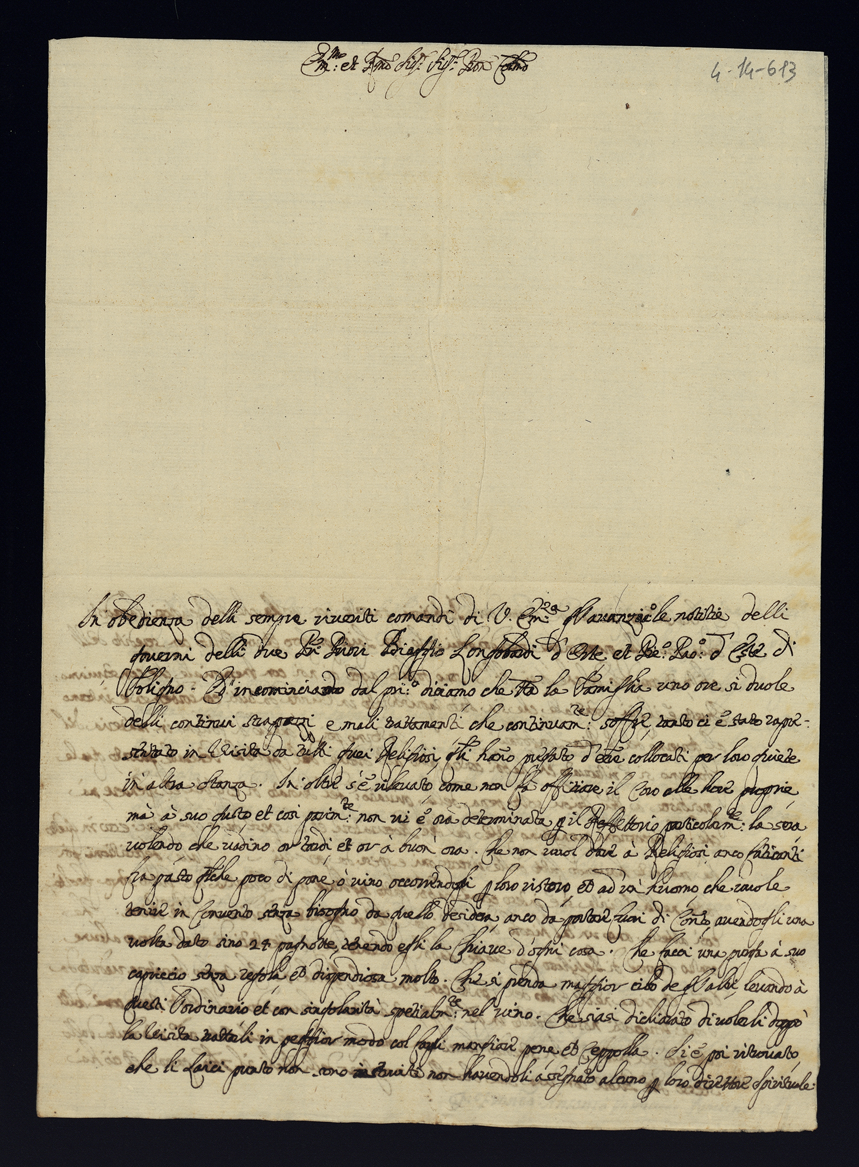 Em.mo et R.mo Sig.r Sig.r P.ron Col.mo
4-14-613
In obedienza delli sempre riveriti comandi di V. Em.za avanzo le notitie delli
governi delli due P.ri Priori Longobardi d'Este et d'Este di
Foligno. Et incominciando dal pri.o diciamo che la Famiglia uno ore si duole
delli continui strapazzi e mali trattamenti che continuam.te soffre, tanto ci è stato rapre-
sentato in Visita da tutti quei Religiosi, hano d'esser collocati per loro quiete
in altra stanza. In oltre s'è rilevato come non fà offitiare il Coro alle hore proprie
mà à suo gusto et così parim.te non vi è ora determinata p il Reffettorio particolarm.te la sera
volendo che vadino or tardi et or à buon ora. Che non vuol dare à Religiosi anco faticanti
frà pasto poco di pane, ò vino occorrendogli p loro ristoro, et ad un huomo che vuole
tenere in Convento senza bisogno da quello desidera anco da portar fuori di Con.to avendogli una
volta dato sino 24 pagnotte, tenendo egli la Chiave d'ogni cosa. Che facci una à suo
capriccio senza regola et dispendiosa molto. Che si prenda maggior cibo de levando à
questi l'ordinario et con singolarità spetialm.te nel vino. Che siasi dichiarato di volerli doppò
la Visita trattarli in peggior modo col fargli mangiare pane et Ceppolla. Si è poi ritrovato,
che li Laici non sono instruiti non havendoli assignato alcuno p loro direttore spirituale